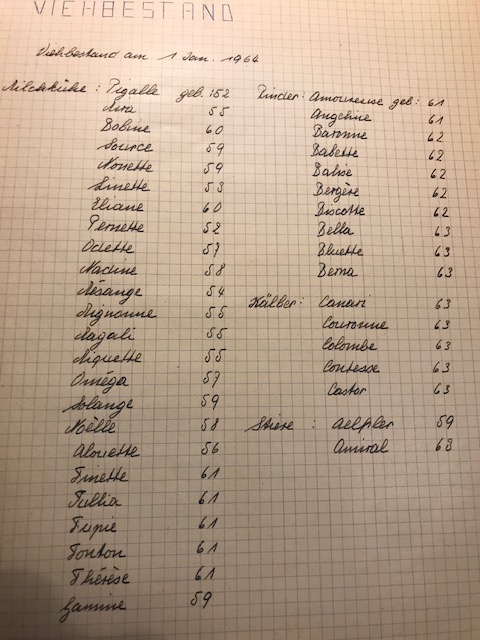 VIEHBESTAND
Viehbestand am 1 Jan. 1964
Milchkühe: Pigalle geb. :52
Mira 55
Bobine 60
Source 59
Nonette 59
Linette 53
Eliane 60
Pernette 52
Odette 57
Nadine 58
Mésange 54
Mignonne 55
Magali 55
Miquette 55
Oméga 57
Solange 59
Noëlle 58
Alouette 56
Finette 61
Tullia 61
Tupie 61
Tonton 61
Thérèse 61
Gamine 59
Rinder: Amoureuse geb: 61
Angeline 61
Baronne 62
Babette 62
Balise 62
Bergère 62
Biscotte 62
Bella 63
Bluette 63
Berna 63
Kälber: Canari 63
Couronne 63
Colombe 63
Contesse 63
Castor 63
Stiere: Aelpler 59
Amiral 63